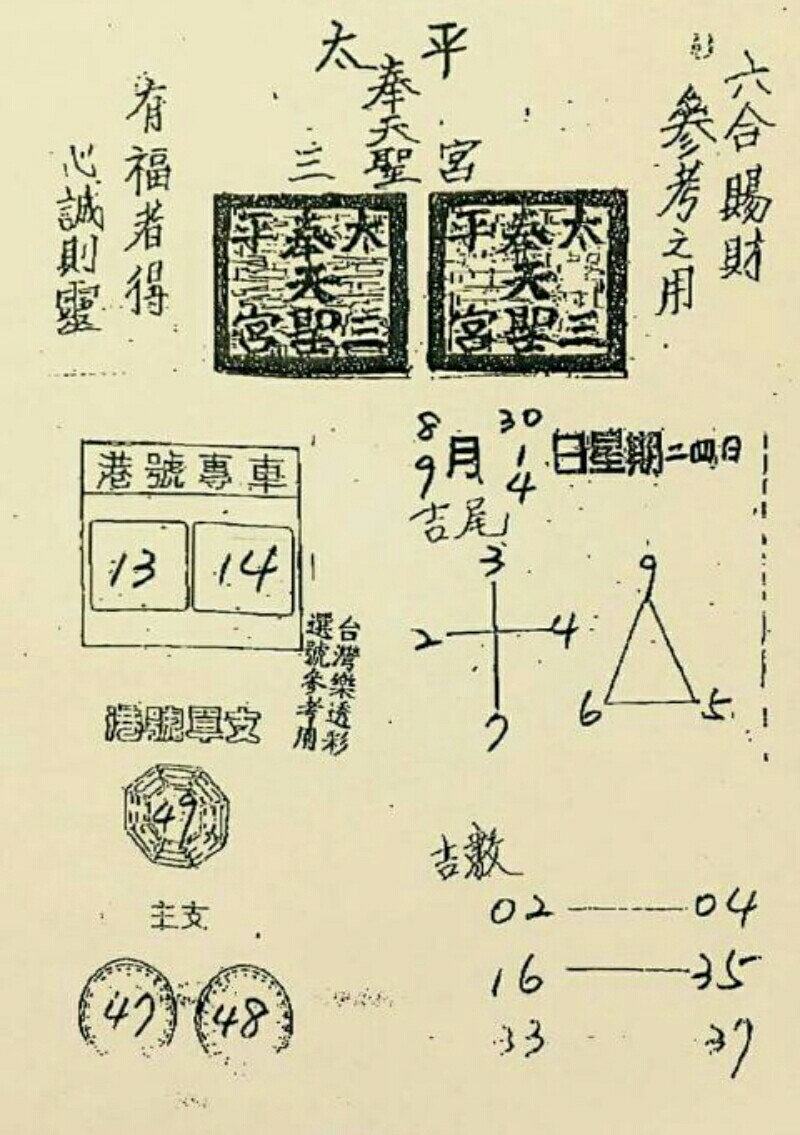 太平
奉天聖
三宮
六合賜財
參考之用
有福者得
心誠則靈
太三
奉天聖
平宮
太三
奉天聖
平宮
8 30
月 1
9 4
日星期二四日
吉尾
3
2 4
7
9
6 5
港號專車
13 14
台灣樂透彩
選號參考用
港號單支
49
主支
47 48
吉數
02 04
16 35
33 37